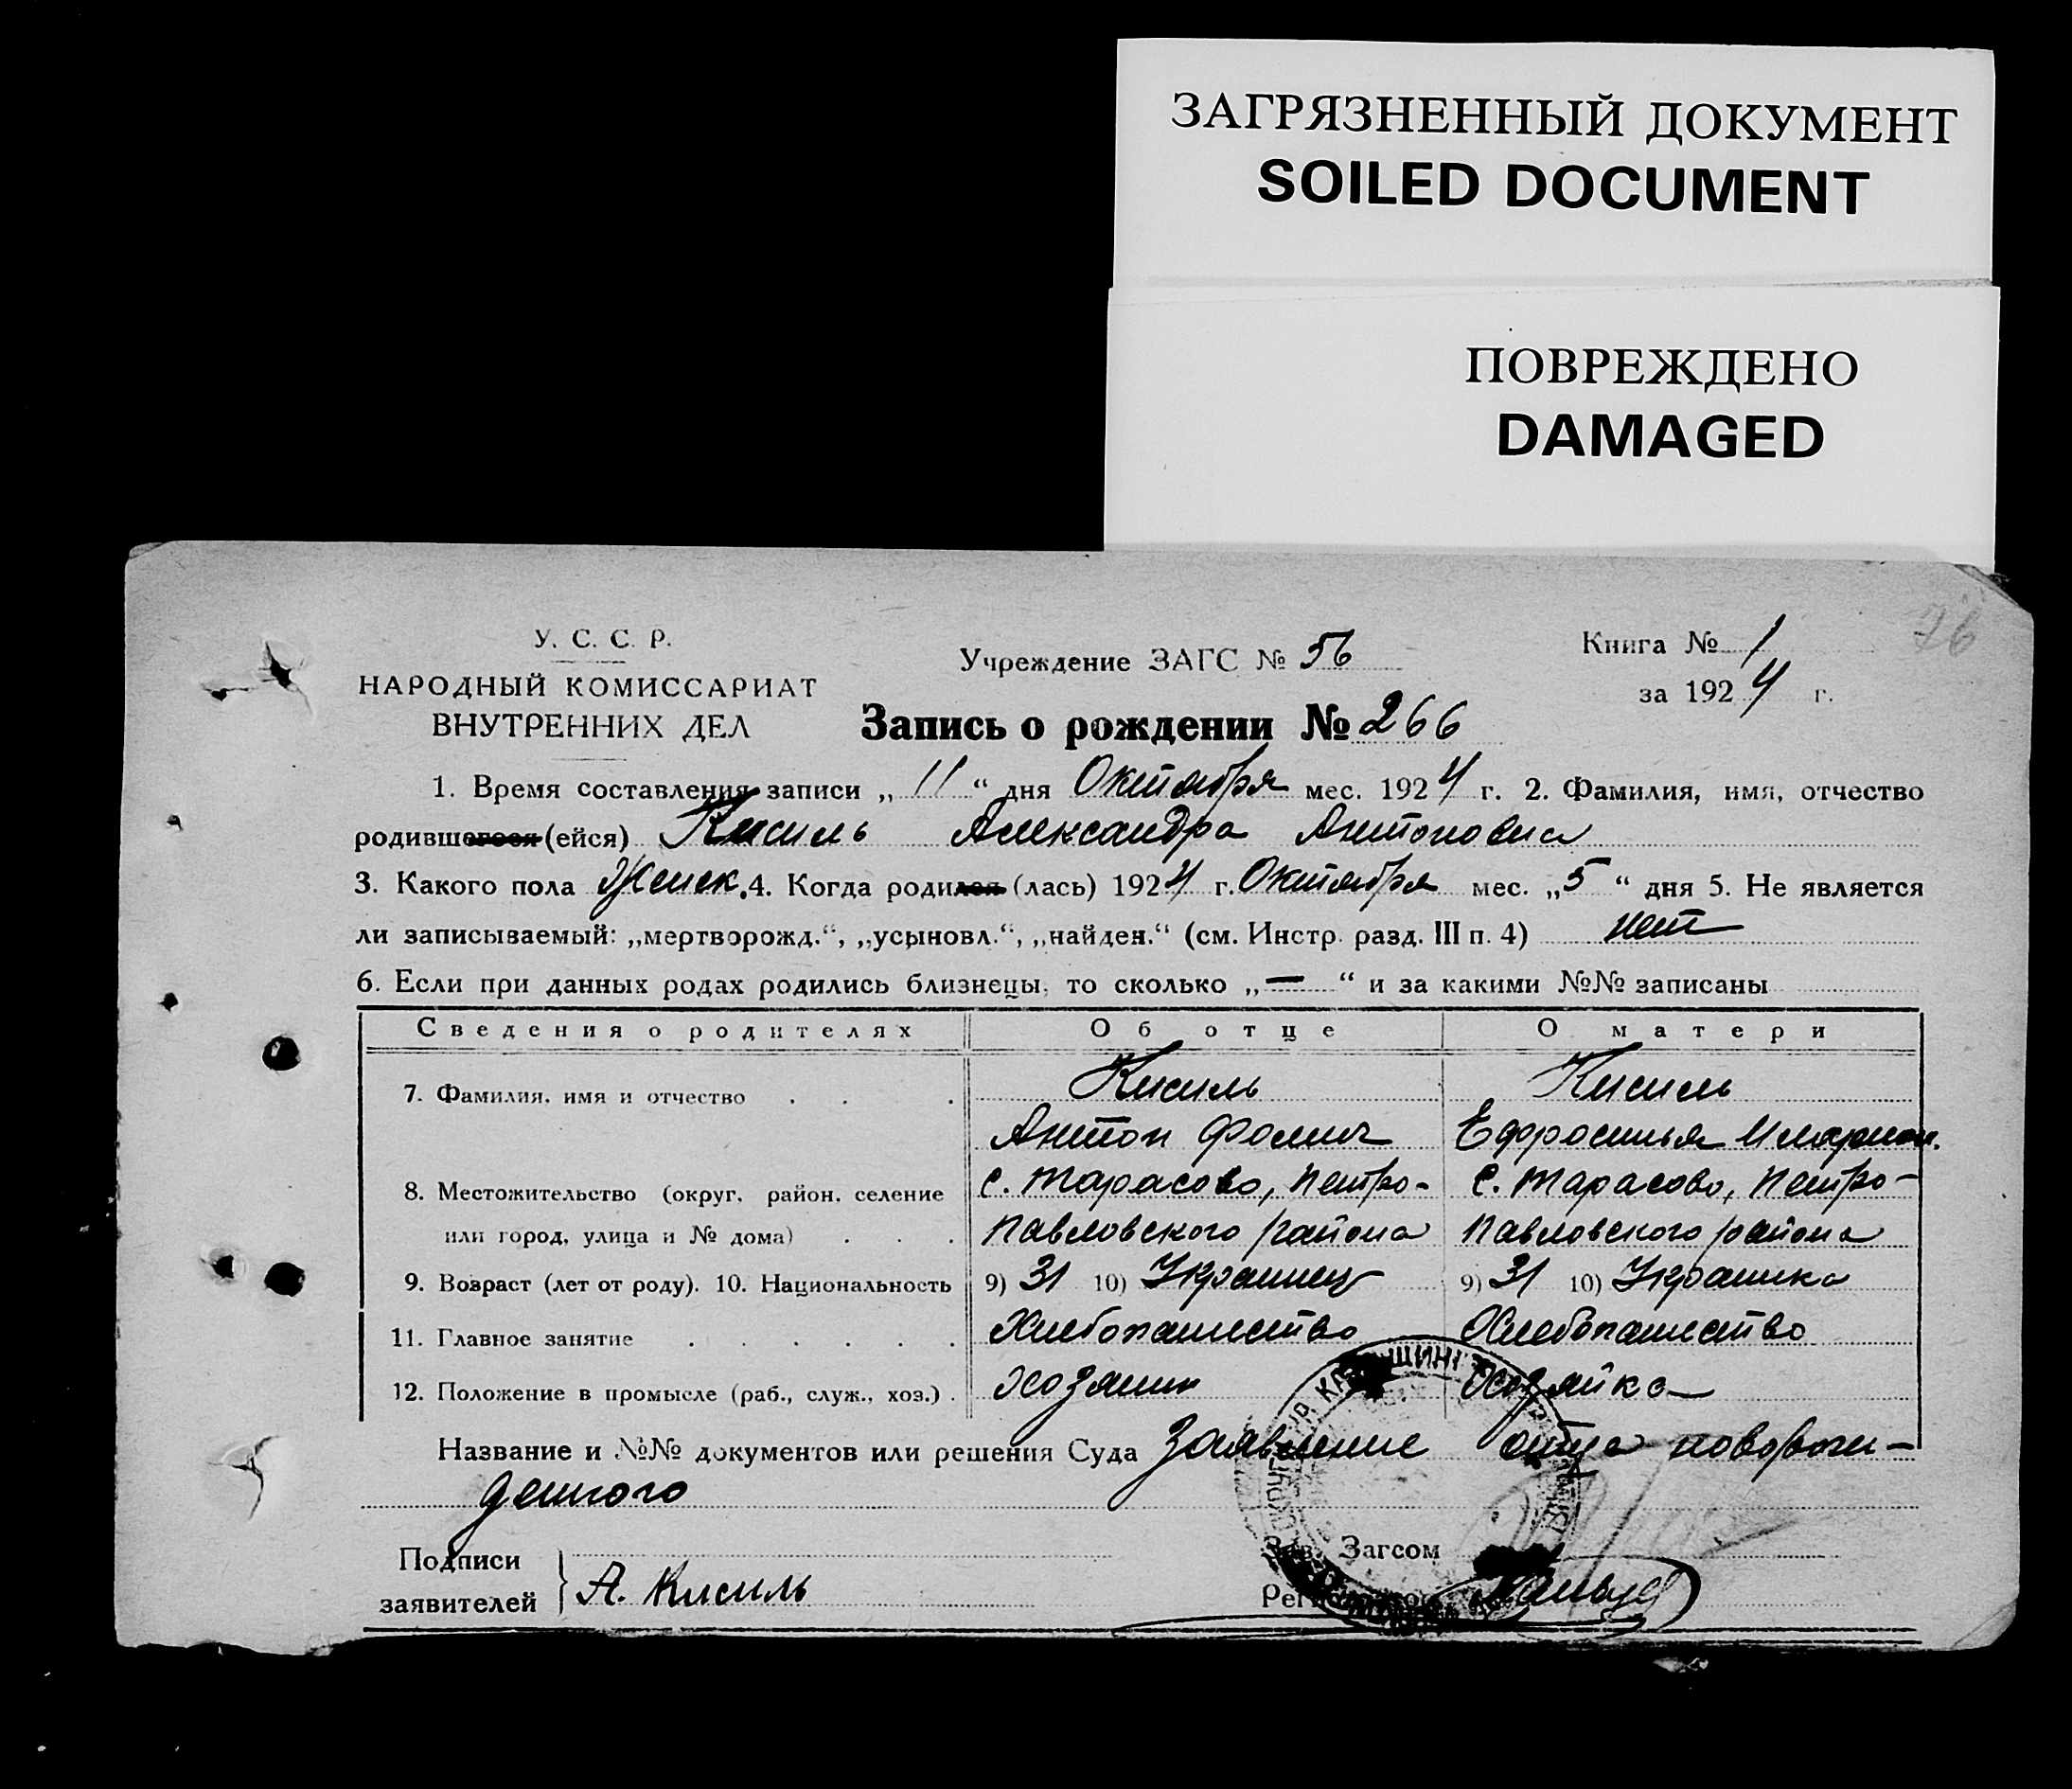 ЗАГРЯЗНЕННЫЙ ДОКУМЕНТ
SOILED DOCUMENT
ПОВРЕЖДЕНО
DAMAGED
76
У. С. С. Р.
НАРОДНЫЙ КОМИССАРИАТ
ВНУТРЕННИХ ДЕЛ
Учреждение ЗАГС № 56
Книга № 1
за 1924 г.
Запись о рождении № 266
1. Время составления записи „11“ дня Октября мес. 1924 г. 2. Фамилия, имя, отчество
родившегося (ейся) Кисиль Александра Антоновна
3. Какого пола Женск. 4. Когда родился (лась) 1924 г. Октября мес. „5“ дня 5. Не является
ли записываемый: „мертворожд.“, „усыновл.“, „найден.“ (см. Инстр. разд. III п. 4) нет
6. Если при данных родах родились близнецы, то сколько „—“ и за какими №№ записаны
Сведения о родителях Об отце О матери
7. Фамилия, имя и отчество Кисиль Кисиль
Антон Фомич Ефросинья Иларион.
8. Местожительство (округ, район, селение с. Тарасово, Петро- с. Тарасово, Петро-
или город, улица и № дома) Павловского района Павловского района
9. Возраст (лет от роду). 10. Национальность 9) 31 10) Украинец 9) 31 10) Украинка
11. Главное занятие Хлебопашество Хлебопашество
12. Положение в промысле (раб., служ., хоз.) Хозяин Хозяйка
Название и №№ документов или решения Суда Заявление отца новорож-
денного
Подписи
заявителей А. Кисиль
Зав. Загсом